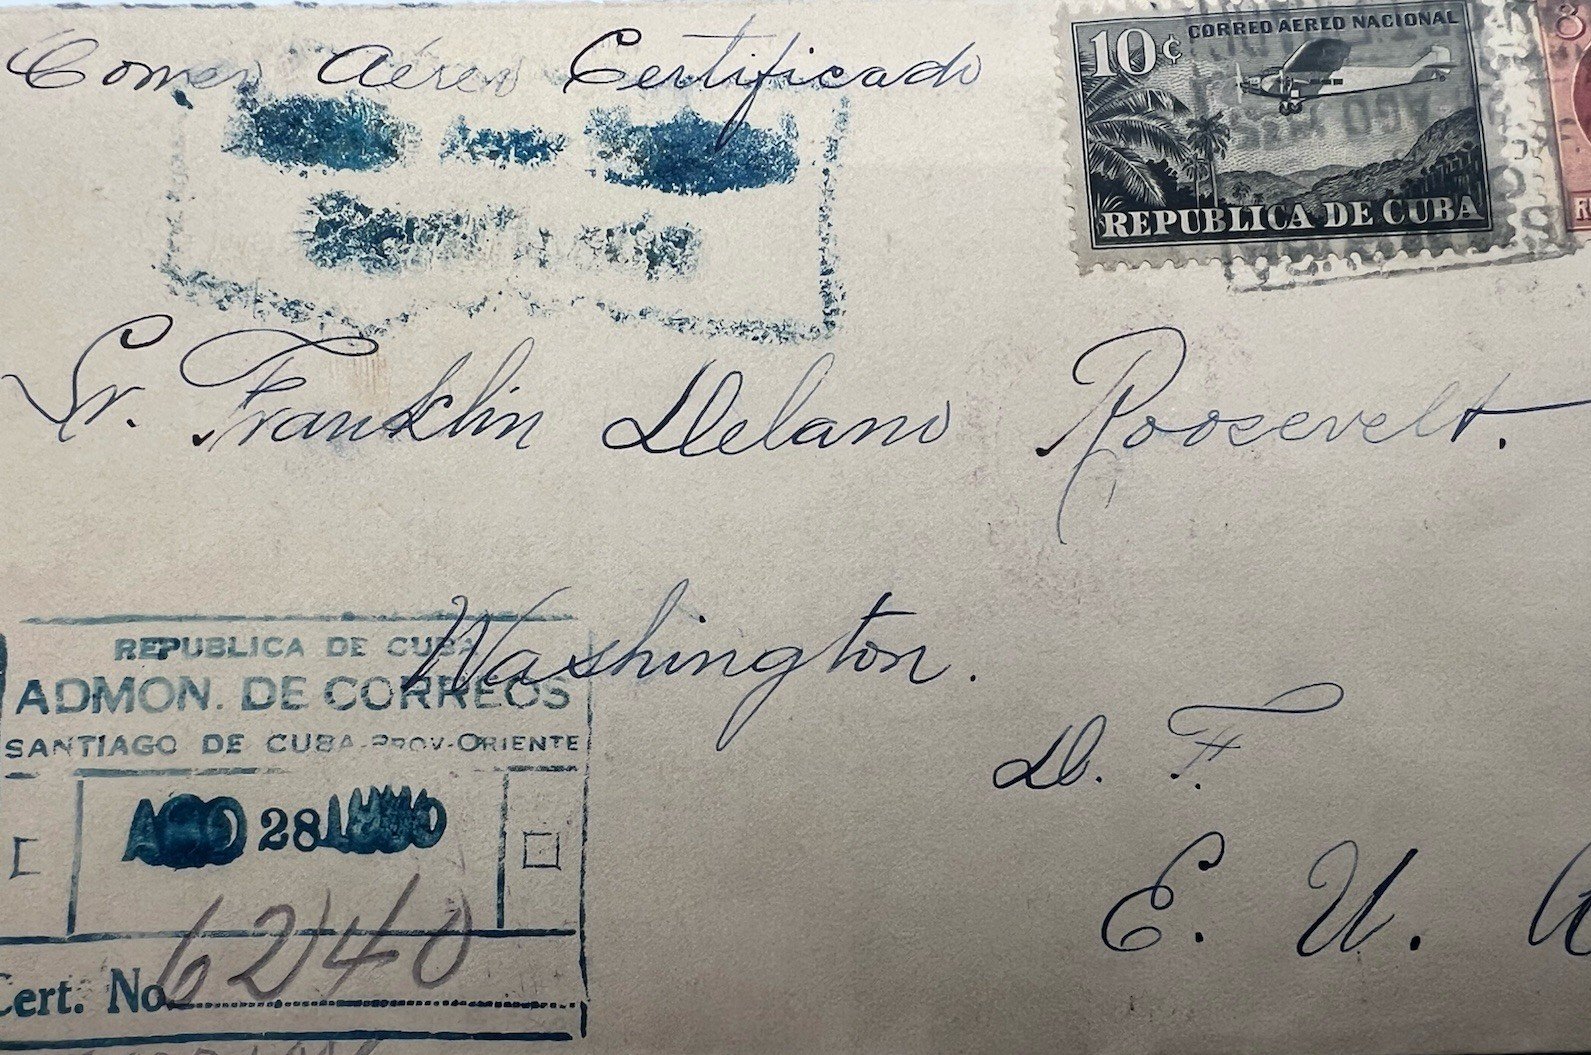 Correo Aéreo Certificado
CORREO AEREO NACIONAL
10¢
REPUBLICA DE CUBA
8
AGO
Sr. Franklin Delano Roosevelt.
Washington.
D. F.
E. U. A
REPUBLICA DE CUBA
ADMON. DE CORREOS
SANTIAGO DE CUBA-PROV-ORIENTE
AGO 28
Cert. No 6240